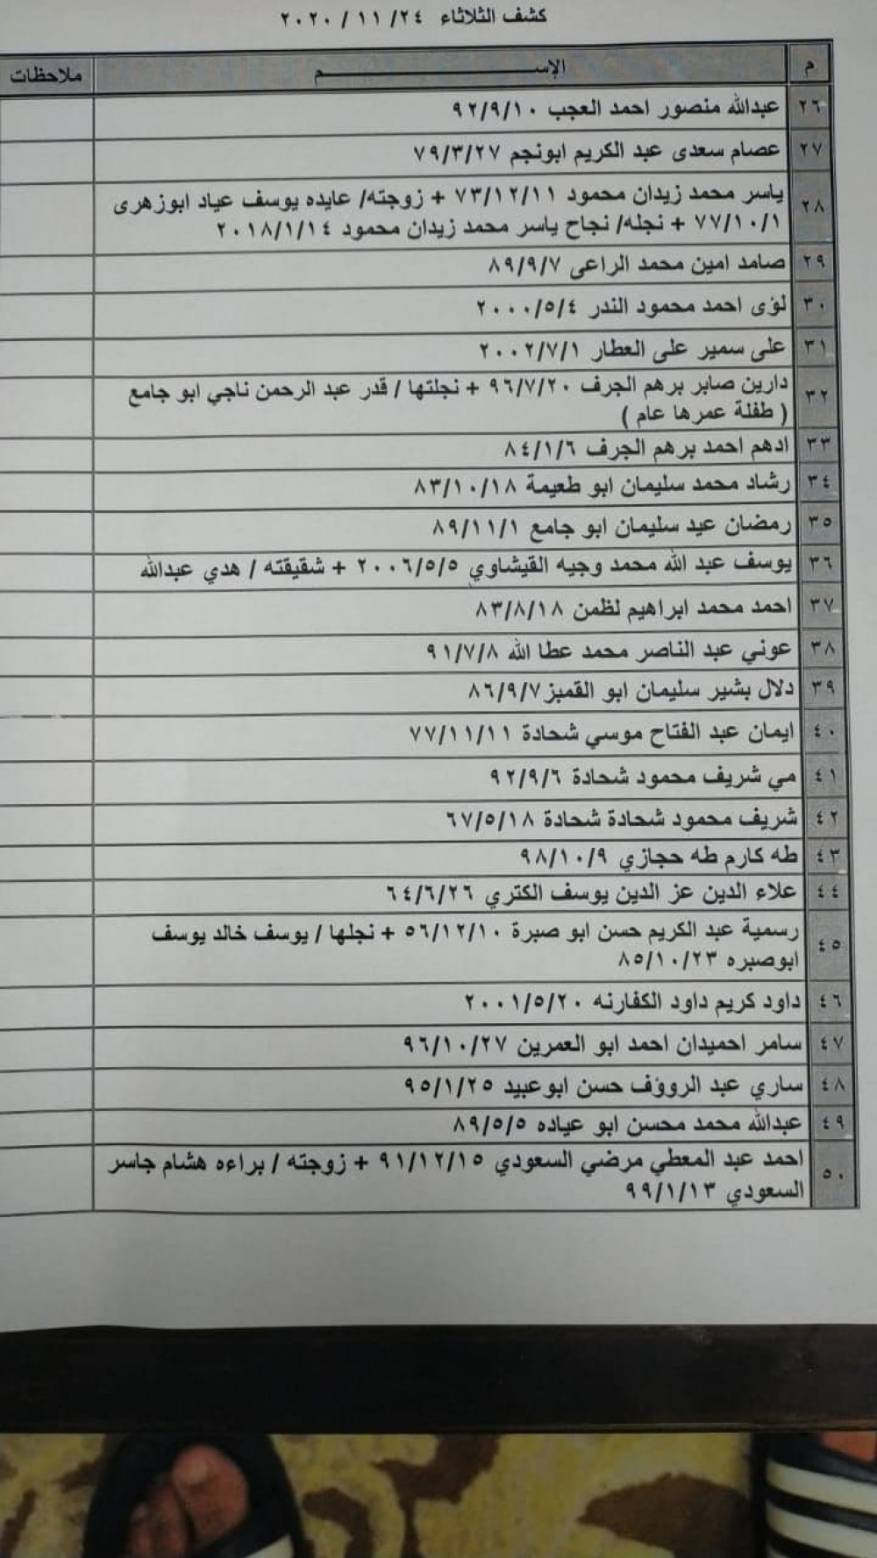 كشف الثلاثاء ٢٤ / ١١ / ٢٠٢٠
م الإســـــم ملاحظات
٢٦ عبدالله منصور احمد العجب ٩٢/٩/١٠
٢٧ عصام سعدى عبد الكريم ابونجم ٧٩/٣/٢٧
٢٨ ياسر محمد زيدان محمود ٧٣/١٢/١١ + زوجته/ عايده يوسف عياد ابوزهرى
٧٧/١٠/١ + نجله/ نجاح ياسر محمد زيدان محمود ٢٠١٨/١/١٤
٢٩ صامد امين محمد الراعى ٨٩/٩/٧
٣٠ لؤى احمد محمود الندر ٢٠٠٠/٥/٤
٣١ على سمير على العطار ٢٠٠٢/٧/١
٣٢ دارين صابر برهم الجرف ٩٦/٧/٢٠ + نجلتها / قدر عبد الرحمن ناجي ابو جامع
( طفلة عمرها عام )
٣٣ ادهم احمد برهم الجرف ٨٤/١/٦
٣٤ رشاد محمد سليمان ابو طعيمة ٨٣/١٠/١٨
٣٥ رمضان عيد سليمان ابو جامع ٨٩/١١/١
٣٦ يوسف عبد الله محمد وجيه القيشاوي ٢٠٠٦/٥/٥ + شقيقته / هدي عبدالله
٣٧ احمد محمد ابراهيم لظمن ٨٣/٨/١٨
٣٨ عوني عبد الناصر محمد عطا الله ٩١/٧/٨
٣٩ دلال بشير سليمان ابو القمبز ٨٦/٩/٧
٤٠ ايمان عبد الفتاح موسي شحادة ٧٧/١١/١١
٤١ مي شريف محمود شحادة ٩٢/٩/٦
٤٢ شريف محمود شحادة شحادة ٦٧/٥/١٨
٤٣ طه كارم طه حجازي ٩٨/١٠/٩
٤٤ علاء الدين عز الدين يوسف الكتري ٦٤/٦/٢٦
٤٥ رسمية عبد الكريم حسن ابو صبرة ٥٦/١٢/١٠ + نجلها / يوسف خالد يوسف
ابوصبره ٨٥/١٠/٢٣
٤٦ داود كريم داود الكفارنه ٢٠٠١/٥/٢٠
٤٧ سامر احميدان احمد ابو العمرين ٩٦/١٠/٢٧
٤٨ ساري عبد الرووف حسن ابوعبيد ٩٥/١/٢٥
٤٩ عبدالله محمد محسن ابو عياده ٨٩/٥/٥
٥٠ احمد عبد المعطي مرضي السعودي ٩١/١٢/١٥ + زوجته / براءه هشام جاسر
السعودي ٩٩/١/١٣